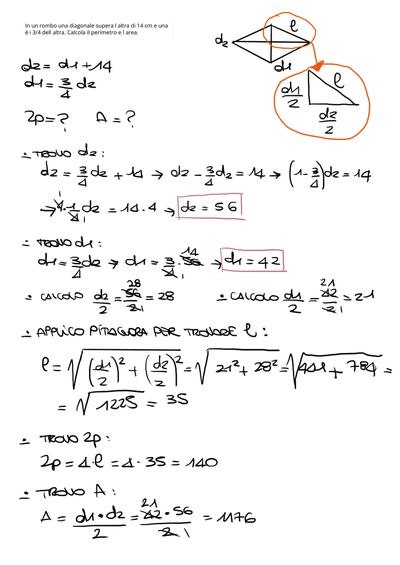 In un rombo una diagonale supera l altra di 14 cm e una
è i 3/4 dell altra. Calcola il perimetro e l area.
d2 = d1 + 14
d1 = 3/4 d2
2p = ? A = ?
d2
l
d1
d1/2
l
d2/2
- TROVO d2:
d2 = 3/4 d2 + 14 → d2 - 3/4 d2 = 14 → (1 - 3/4) d2 = 14
→ 4 · 1/4 d2 = 14 · 4 → d2 = 56
- TROVO d1:
d1 = 3/4 d2 → d1 = 3/4 · 56 → d1 = 42
14
1
- CALCOLO d2/2 = 56/2 = 28 - CALCOLO d1/2 = 42/2 = 21
28
1
21
1
- APPLICO PITAGORA PER TROVARE l:
l = √((d1/2)² + (d2/2)²) = √(21² + 28²) = √(441 + 784) =
= √1225 = 35
- TROVO 2p:
2p = 4 · l = 4 · 35 = 140
- TROVO A:
A = d1 · d2 / 2 = 42 · 56 / 2 = 1176
21
1